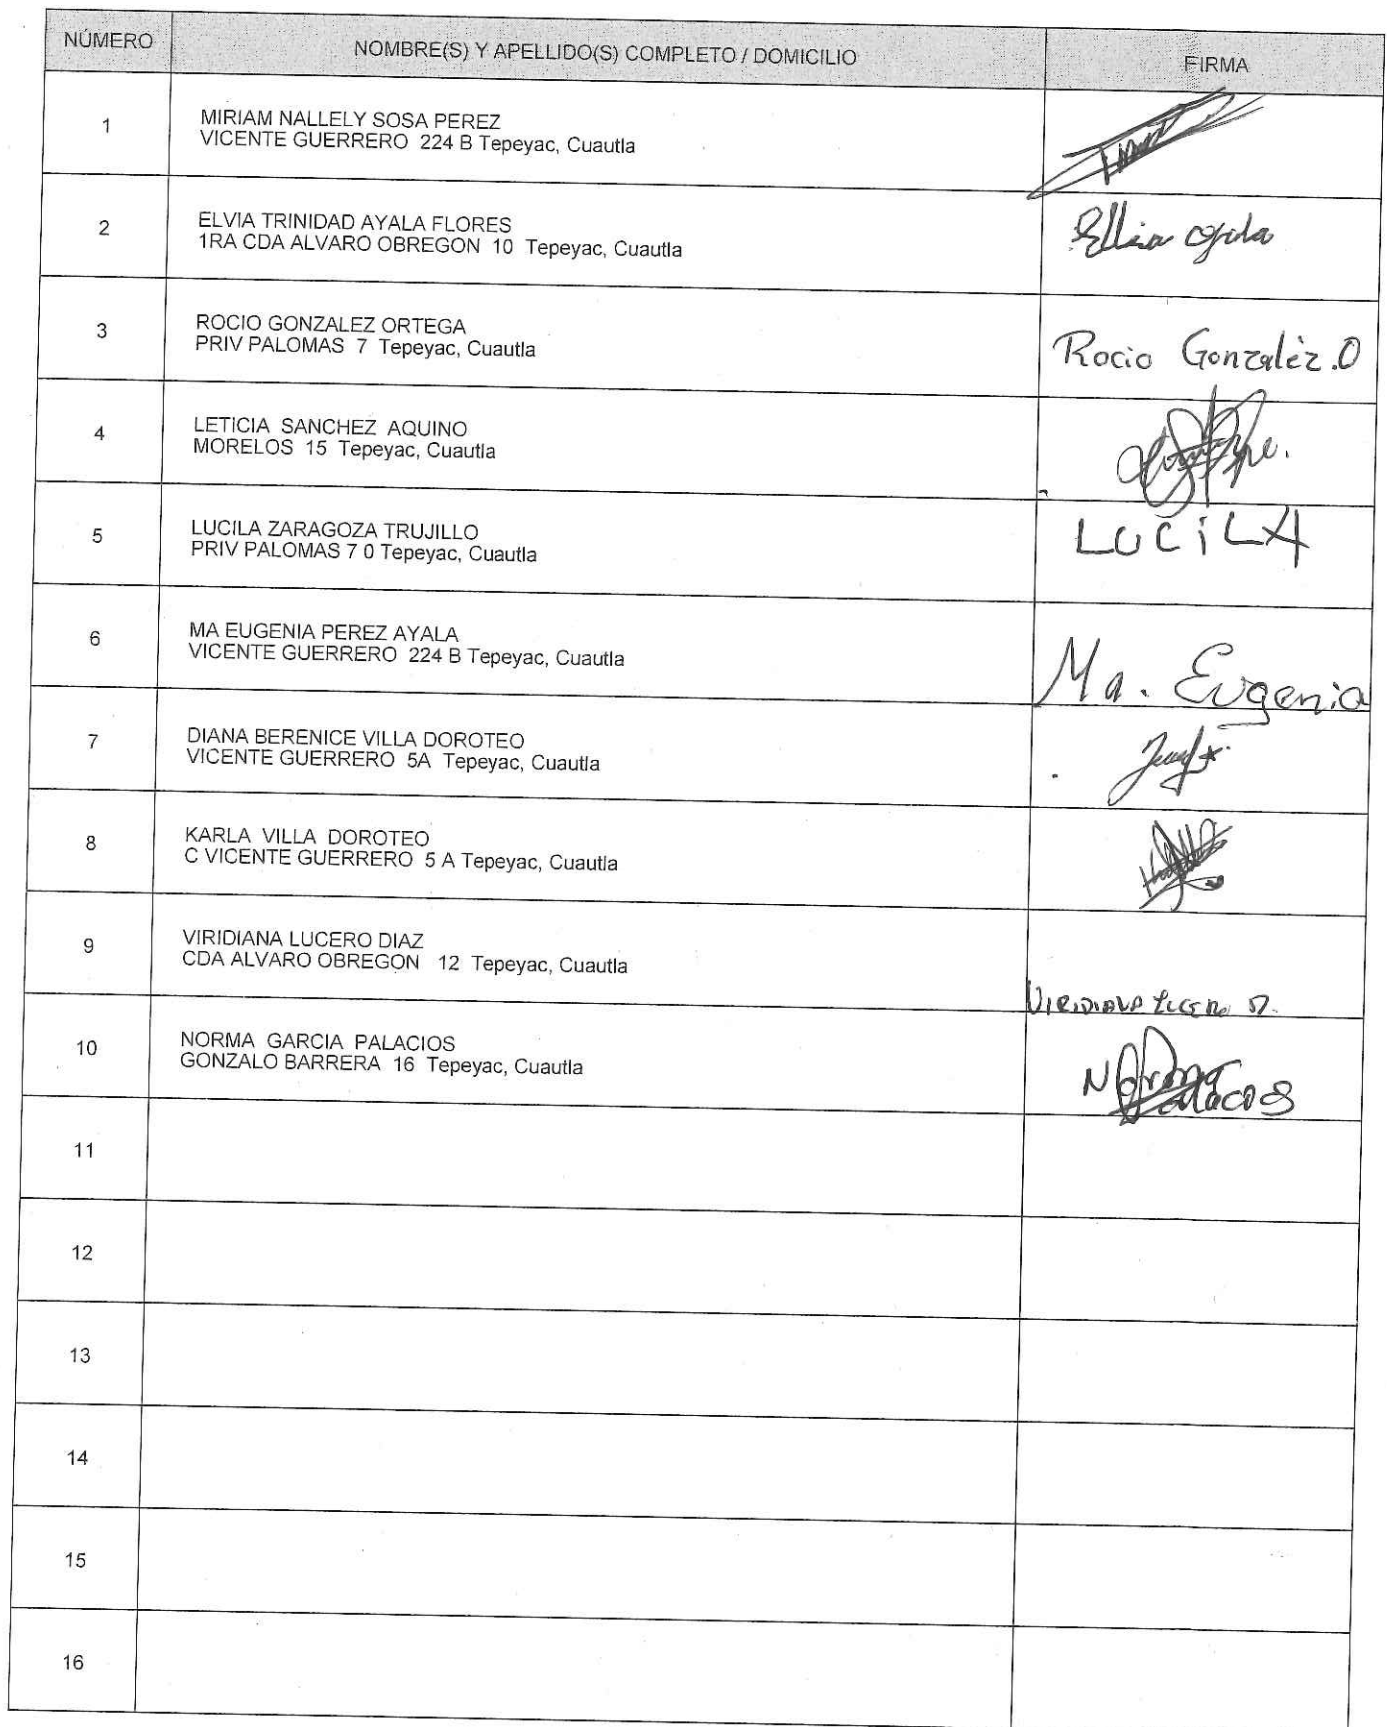 NÚMERO NOMBRE(S) Y APELLIDO(S) COMPLETO / DOMICILIO FIRMA
1 MIRIAM NALLELY SOSA PEREZ
VICENTE GUERRERO 224 B Tepeyac, Cuautla
2 ELVIA TRINIDAD AYALA FLORES
1RA CDA ALVARO OBREGON 10 Tepeyac, Cuautla
3 ROCIO GONZALEZ ORTEGA
PRIV PALOMAS 7 Tepeyac, Cuautla
Rocio Gonzaléz.O
4 LETICIA SANCHEZ AQUINO
MORELOS 15 Tepeyac, Cuautla
5 LUCILA ZARAGOZA TRUJILLO
PRIV PALOMAS 7 0 Tepeyac, Cuautla
LUCiLA
6 MA EUGENIA PEREZ AYALA
VICENTE GUERRERO 224 B Tepeyac, Cuautla
Ma. Eugenia
7 DIANA BERENICE VILLA DOROTEO
VICENTE GUERRERO 5A Tepeyac, Cuautla
8 KARLA VILLA DOROTEO
C VICENTE GUERRERO 5 A Tepeyac, Cuautla
9 VIRIDIANA LUCERO DIAZ
CDA ALVARO OBREGON 12 Tepeyac, Cuautla
VIRIDIANA Lucero D.
10 NORMA GARCIA PALACIOS
GONZALO BARRERA 16 Tepeyac, Cuautla
Norma
Palacios
11
12
13
14
15
16